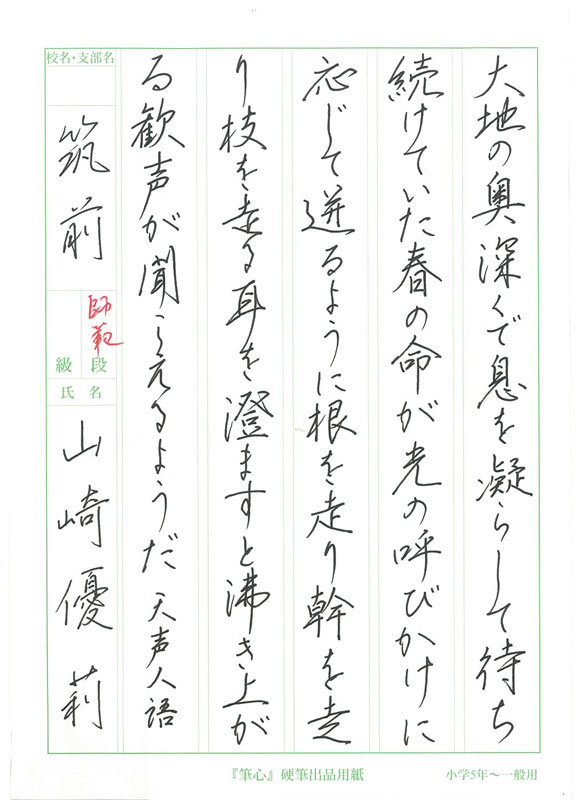 大地の奥深くで息を凝らして待ち
続けていた春の命が光の呼びかけに
応じて迸るように根を走り幹を走
り枝を走る耳を澄ますと沸き上が
る歓声が聞こえるようだ 天声人語
校名・支部名
筑前
師範
段
級
氏名
山崎優莉
『筆心』硬筆出品用紙
小学5年〜一般用